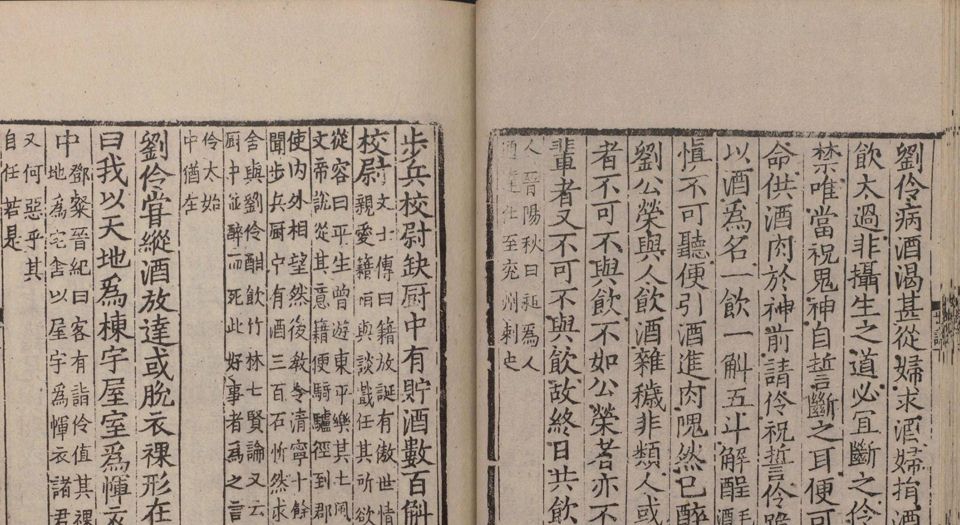 劉伶病酒渴甚從婦求酒婦捐酒
飲太過非攝生之道必宜斷之伶
禁唯當祝鬼神自誓斷之耳便可
命供酒肉於神前請伶祝誓伶跪
以酒為名一飲一斛五斗解酲
慎不可聽便引酒進肉隗然已醉
劉公榮與人飲酒雜穢非類人或
者不可不與飲不如公榮者亦不
輩者又不可不與飲故終日共飲
人晉陽秋曰昶為人
通達仕至兖州刺史
步兵校尉缺厨中有貯酒數百斛
校尉
文士傳曰籍放誕有傲世情
親愛籍與談戲任其所欲
從容曰平生曽遊東平樂其土風
文帝說從其意籍便騎驢徑到郡
使内外相望然後教令清寧十餘
聞步兵厨中有酒三百石忻然求
舍與劉伶酣飲竹林七賢論又云
厨中並醉而死此好事者為之言
伶太始
中猶在
劉伶甞縱酒放達或脫衣裸形在
曰我以天地爲棟宇屋室爲㡓衣
中
鄧粲晉紀曰客有詣伶值其裸
地為宅舍以屋宇為㡓衣諸君
又何惡乎其
自任若是